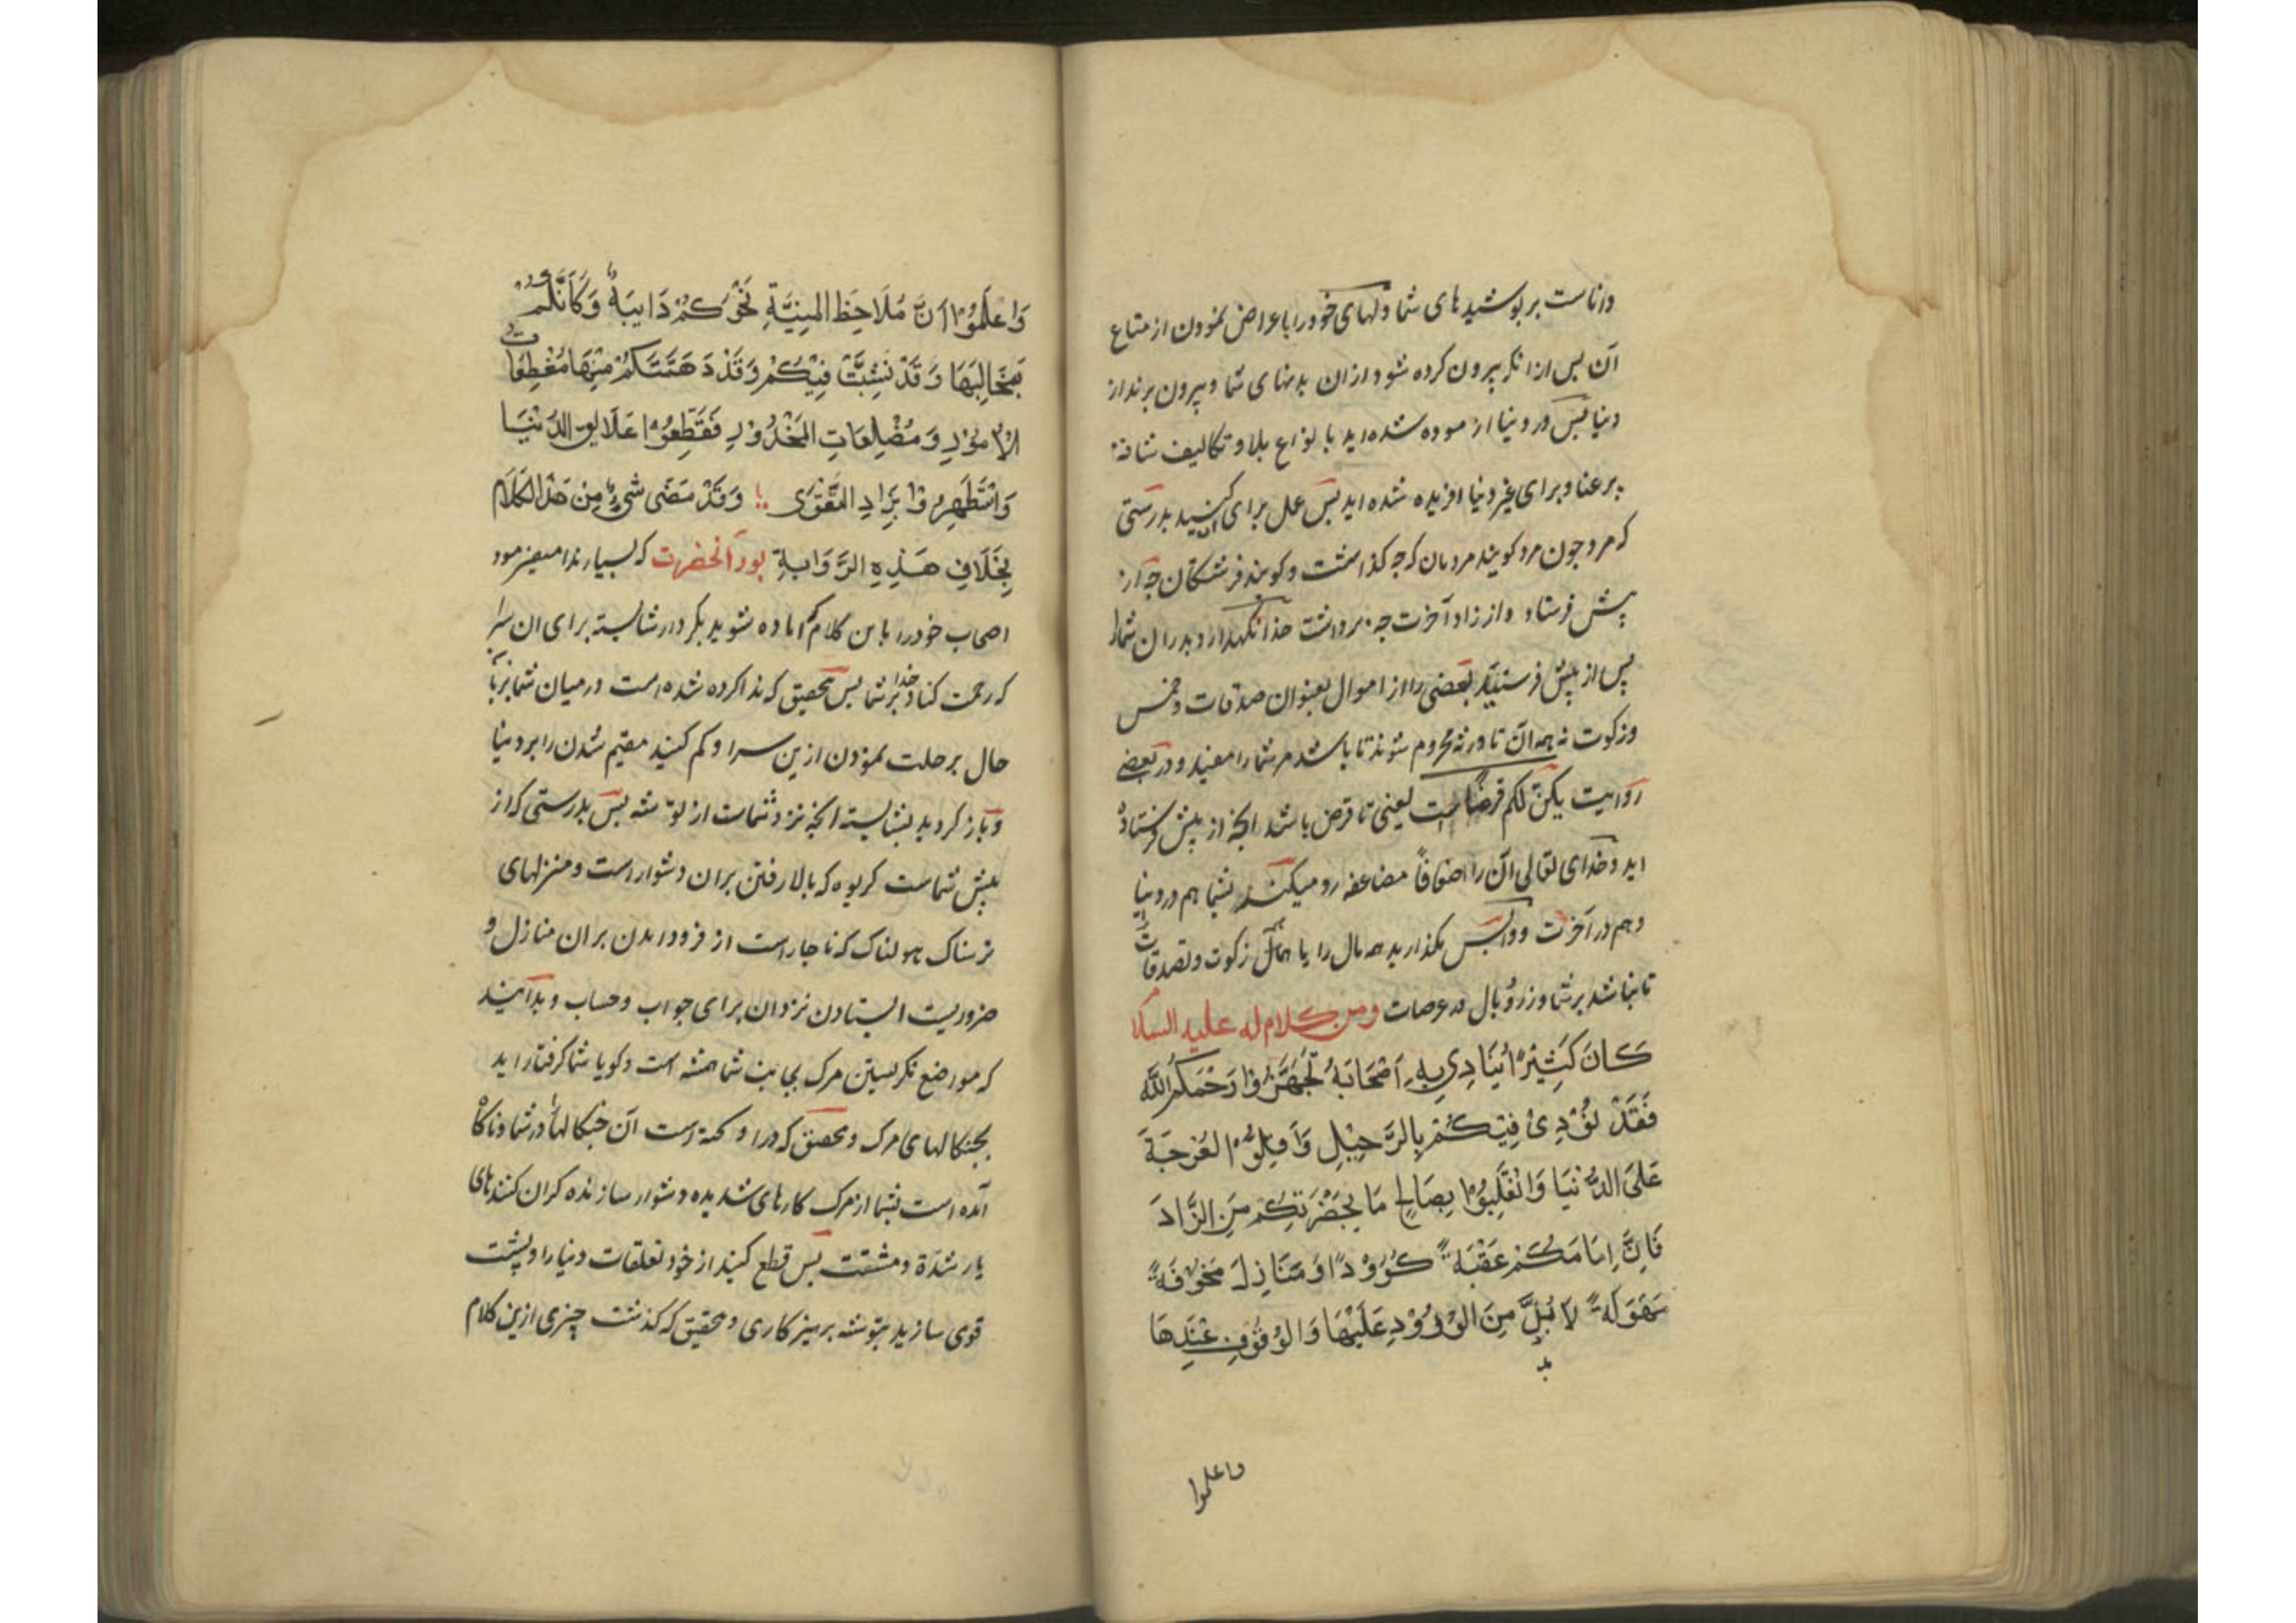 داناست بر پوشیدهای شما و دلهای خود را با عراض نمودن از متاع
آن پس ازانکه بیرون کرده شود ازان بدنهای شما و بیرون برند از
دنیا پس در دنیا ازموده شده اید با نواع بلا و تکالیف شاقه
پر عنا و برای غیر دنیا افریده شده اید پس عمل برای آن کنید بدرستی
که مرد چون مرد کویند مردمان که چه کذاشت و کویند فرشتکان چه از
پیش فرستاد و از زاد آخرت چه برداشت خدا نکهدارد پدران شما را
پس از پیش فرستید بعضی را از اموال بعنوان صدقات و خمس
وزکوت نه همه آن تا ورثه محروم شوند تا باشد مر شما را مفید و در بعضی
روایت یکن لکم قرضا است یعنی تا قرض باشد انچه از پیش فرستاده
اید و خدای تعالی آن را اضعافاً مضاعفه رد میکند بشما هم در دنیا
و هم در آخرت و واپس مکذارید همه مال را با همال زکوت و تصدقات
تا نباشد بر شما وزر و بال در عرصات ومن کلام له علیه السلا
كَانَ كَثِيرًا يُنَادِي بِهِ اَصْحَابَهُ تَجَهَّزُوا رَحْمَكُمُ اللَّهُ
فَقَدْ نُوْدِیَ فِيْكُمْ بِالرَّحِيْلِ وَاَقِلُّوا الْعُرْجَةَ
عَلَى الدُّنْيَا وَانْقَلِبُوْا بِصَالِحِ مَا بِحَضْرَتِكُمْ مِنَ الزَّادَ
فَاِنَّ اِمَامَكُمْ عَقَبَةً كَؤُوْدًا وَمَنَازِلَ مَخُوْفَةً
مَهَوَلَةً لَا بُدَّ مِنَ الْوُرُوْدِ عَلَيْهَا وَالْوُقُوْفِ عِنْدِهَا
واعلموا
وَاعْلَمُوْا اَنَّ مَلَاحِظَ الْمَنِيَّةِ نَحْوَكُمْ دَايِبَةٌ وَكَاَنَّكُمْ
بِمَخَالِبِهَا وَقَدْ نَشِبَتْ فِيْكُمْ وَقَدْ دَهَمَتْكُمْ مِنْهَا مُفْظِعَاتُ
الْاُمُوْرِ وَمُضْلِعَاتِ الْمَحْذُوْرِ فَقَطِّعُوْا عَلَايِقَ الدُّنْيَا
وَاسْتَظْهِرُوْا بِزَادِ التَّقْوَى وَقَدْ مَضَى شَيْءٌ مِنْ هَذَا الْكَلَامِ
بِخَلَافِ هَذِهِ الرِّوَايَةِ بود آنحضرت که بسیار ندا میفرمود
اصحاب خود را باین کلام که اماده شوید بکردار شایسته برای ان سرا
که رحمت کناد خدا بر شما پس تحقیق که ندا کرده شده است در میان شما بزبان
حال برحلت نمودن ازین سرا و کم کنید مقیم شدن را بر دنیا
و باز کردید بشایسته انچه نزد شماست از توشه پس بدرستی که از
پیش شماست کریوه که بالا رفتن بران دشوار است و منزلهای
ترسناک هولناک که ناچار است از فرود امدن بران منازل و
ضروریست ایستادن نزد ان برای جواب و حساب و بدانید
که مواضع نکریستن مرک بجانب شما همیشه است و کویا شما کرفتار اید
بچنکالهای مرک و تحقیق که درا و کمته است آن چنکالها در شما و ناکاه
آمده است بشما از مرک کارهای شدیده دشوار سازنده کران کنندهای
بار شدة و مشقت پس قطع کنید از خود تعلقات دنیا را و پشت
قوی سازید بتوشه پرهیز کاری و تحقیق که کذشت چیزی ازین کلام